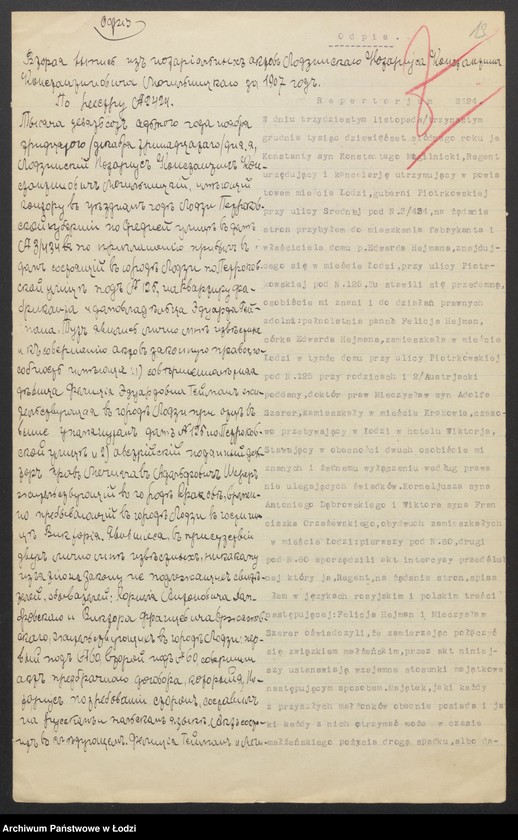 Odpis
Odpis.
13
Вторая выпись изъ нотаріальныхъ актовъ Лодзинскаго Нотаріуса Константина
Константиновича Могильницкаго за 1907 годъ.
По реестру № 2424.
Тысяча девятьсотъ седьмого года ноября
тридцатаго /декабря тринадцатаго/ дня, я,
Лодзинскій Нотаріусъ Константинъ Кон-
стантиновичъ Могильницкій, имѣющій
контору въ уѣздномъ годѣ Лодзи Петроков-
ской губерніи по Средней улицѣ въ домѣ
№ 3/434 по приглашенію прибылъ въ
домъ состоящій въ городѣ Лодзи по Петроков-
ской улицѣ подъ № 125, въ квартиру фа-
бриканта и домовладѣльца Эдуарда Гей-
мана. Тутъ явились лично мнѣ извѣстные
и къ совершенію актовъ законную правоспо-
собность имѣющіе: 1) совершеннолѣтняя
дѣвица Фелиція Эдуардовна Гейманъ жи-
тельствующая въ городѣ Лодзи при отцѣ въ
домѣ № 125 по Петроков-
ской улицѣ и 2) австрійскій подданный док-
торъ правъ Мечиславъ Адольфовичъ Шереръ
жительствующій въ городѣ Краковѣ, времен-
но пребывающій въ городѣ Лодзи въ гостини-
цѣ Викторія. Явившіеся, въ присутствіи
двухъ лично мнѣ извѣстныхъ, никакому
изъятію по закону не подлежащихъ свидѣ-
телей, Корнилія Антоновича Дом-
бровскаго и Виктора Францовича Оржешов-
скаго, жительствующихъ въ городѣ Лодзи: пер-
вый подъ № 60, второй подъ № 60, совершили
актъ предбрачнаго договора, который я, Но-
таріусъ по требованію сторонъ, составилъ
на русскомъ и польскомъ языкѣ
въ слѣдующемъ: Фелиція Гейманъ и Мечи-
Repertorjum 2424.
W dniu trzydziestym listopada/trzynastym
grudnia tysiąc dziewięćset siódmego roku ja
Konstanty syn Konstantego Mogilnicki,Rejent
urzędujący i kancelarję utrzymujący w powia
towem mieście Łodzi, guberni Piotrkowskiej
przy ulicy Średniej pod N.3/434,na żądanie
stron przybyłem do mieszkania fabrykanta i
właściciela domu p.Edwarda Hejmana,znajduj-
cego się w mieście Łodzi,przy ulicy Piotr-
kowskiej pod N.125.Tu stawili się przedemną,
osobiście mi znani i do działań prawnych
zdolni:pełnoletnia panna Felicja Hejman,
córka Edwarda Hejmana,zamieszkała w mieście
Łodzi w tymże domu przy ulicy Piotrkowskiej
pod N.125 przy rodzicach i 2/Austrjacki
poddany,doktór praw Mieczysław syn Adolfa
Szerer,zamieszkały w mieście Krakowie,czaso-
wo przebywający w Łodzi w hotelu Wiktorja.
Stawający w obecności dwuch osobiście mi
znanych i żadnemu wyłączeniu według prawa
nie ulegających świadków.Korneljusza syna
Antoniego Dąbrowskiego i Wiktora syna Fran
ciszka Orzeszewskiego,obydwuch zamieszkałych
w mieście Łodzi:pierwszy pod N.60,drugi
pod N.60 sporządzili akt intercyzy przedślub
nej który ja,Rejent,na żądanie stron,spisa
łam w językach rosyjskim i polskim treści
następującej:Felicja Hejman i Mieczysław
Szerer oświadczyli,że zamierzając połączyć
się związkiem małżeńskim,przez akt niniej-
szy ustanawiają wzajemne stosunki majątkowe
następującym sposobem.Majątek,jaki każdy
z przyszłych małżonków obecnie posiada i ja
ki każdy z nich otrzymać może w czasie
małżeńskiego pożycia drogą spadku,albo da-
Archiwum Państwowe w Łodzi